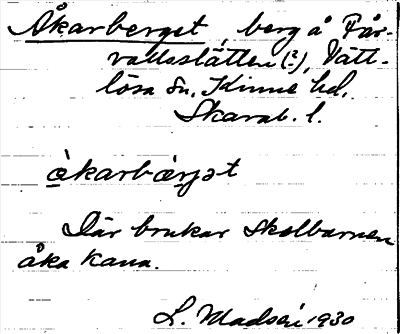 Åkarberget, berg å Får-
vallsslätten (?), Vätt-
lösa sn, Kinne hd,
Skarab. l.
åkarbærjət
Där brukar skolbarnen
åka kana.
L. Madsén 1930